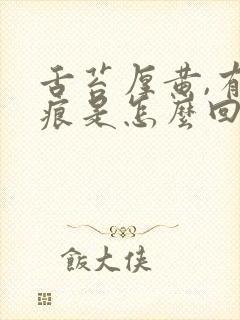 舌苔厚黄,有
痕是怎麼回
飯大俠